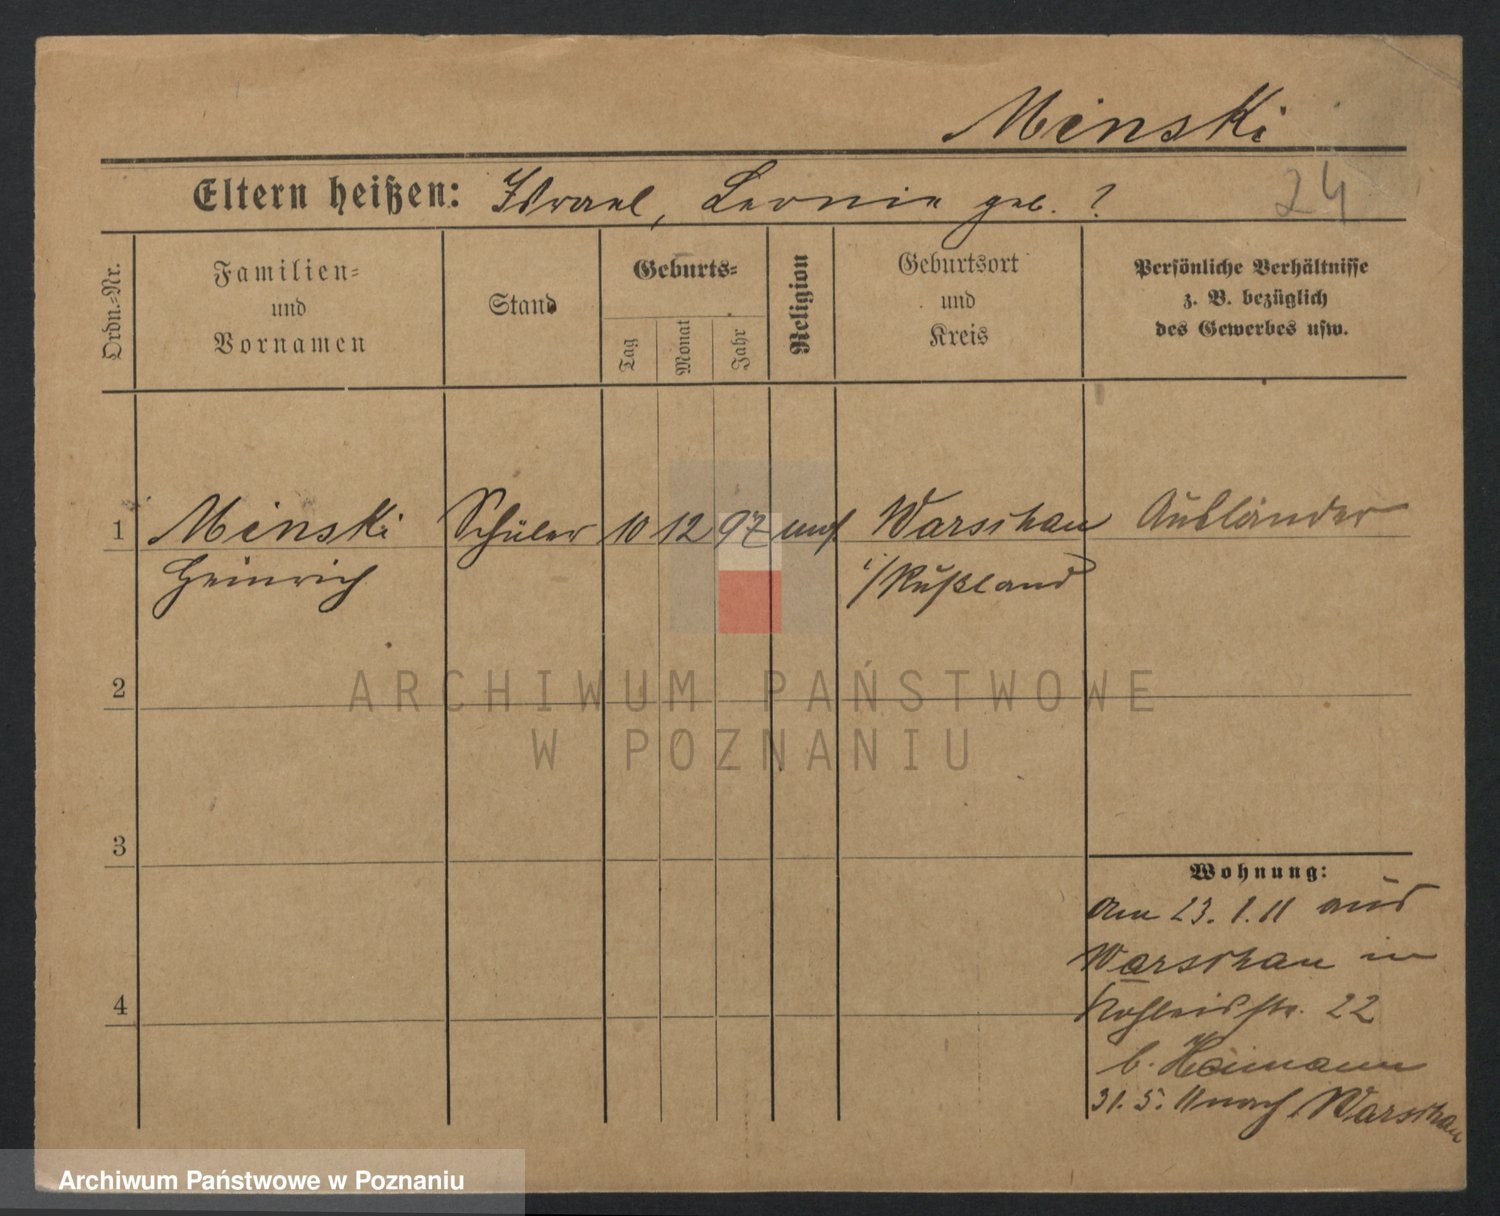 Minski
Eltern heißen: Israel, Leonie geb. ?
24
Ordn.-Nr.
Familien-
und
Vornamen
Stand
Geburts-
Tag
Monat
Jahr
Religion
Geburtsort
und
Kreis
Persönliche Verhältnisse
z. B. bezüglich
des Gewerbes usw.
1 Minski Schüler 10 12 97 Warschau Ausländer
Heinrich i/Rußland
2
ARCHIWUM PAŃSTWOWE
W POZNANIU
3
Wohnung:
am 23. 1. 11 aus
Warschau in
22
4
b. Heimann
31. 5. 11 nach Warschau
Archiwum Państwowe w Poznaniu